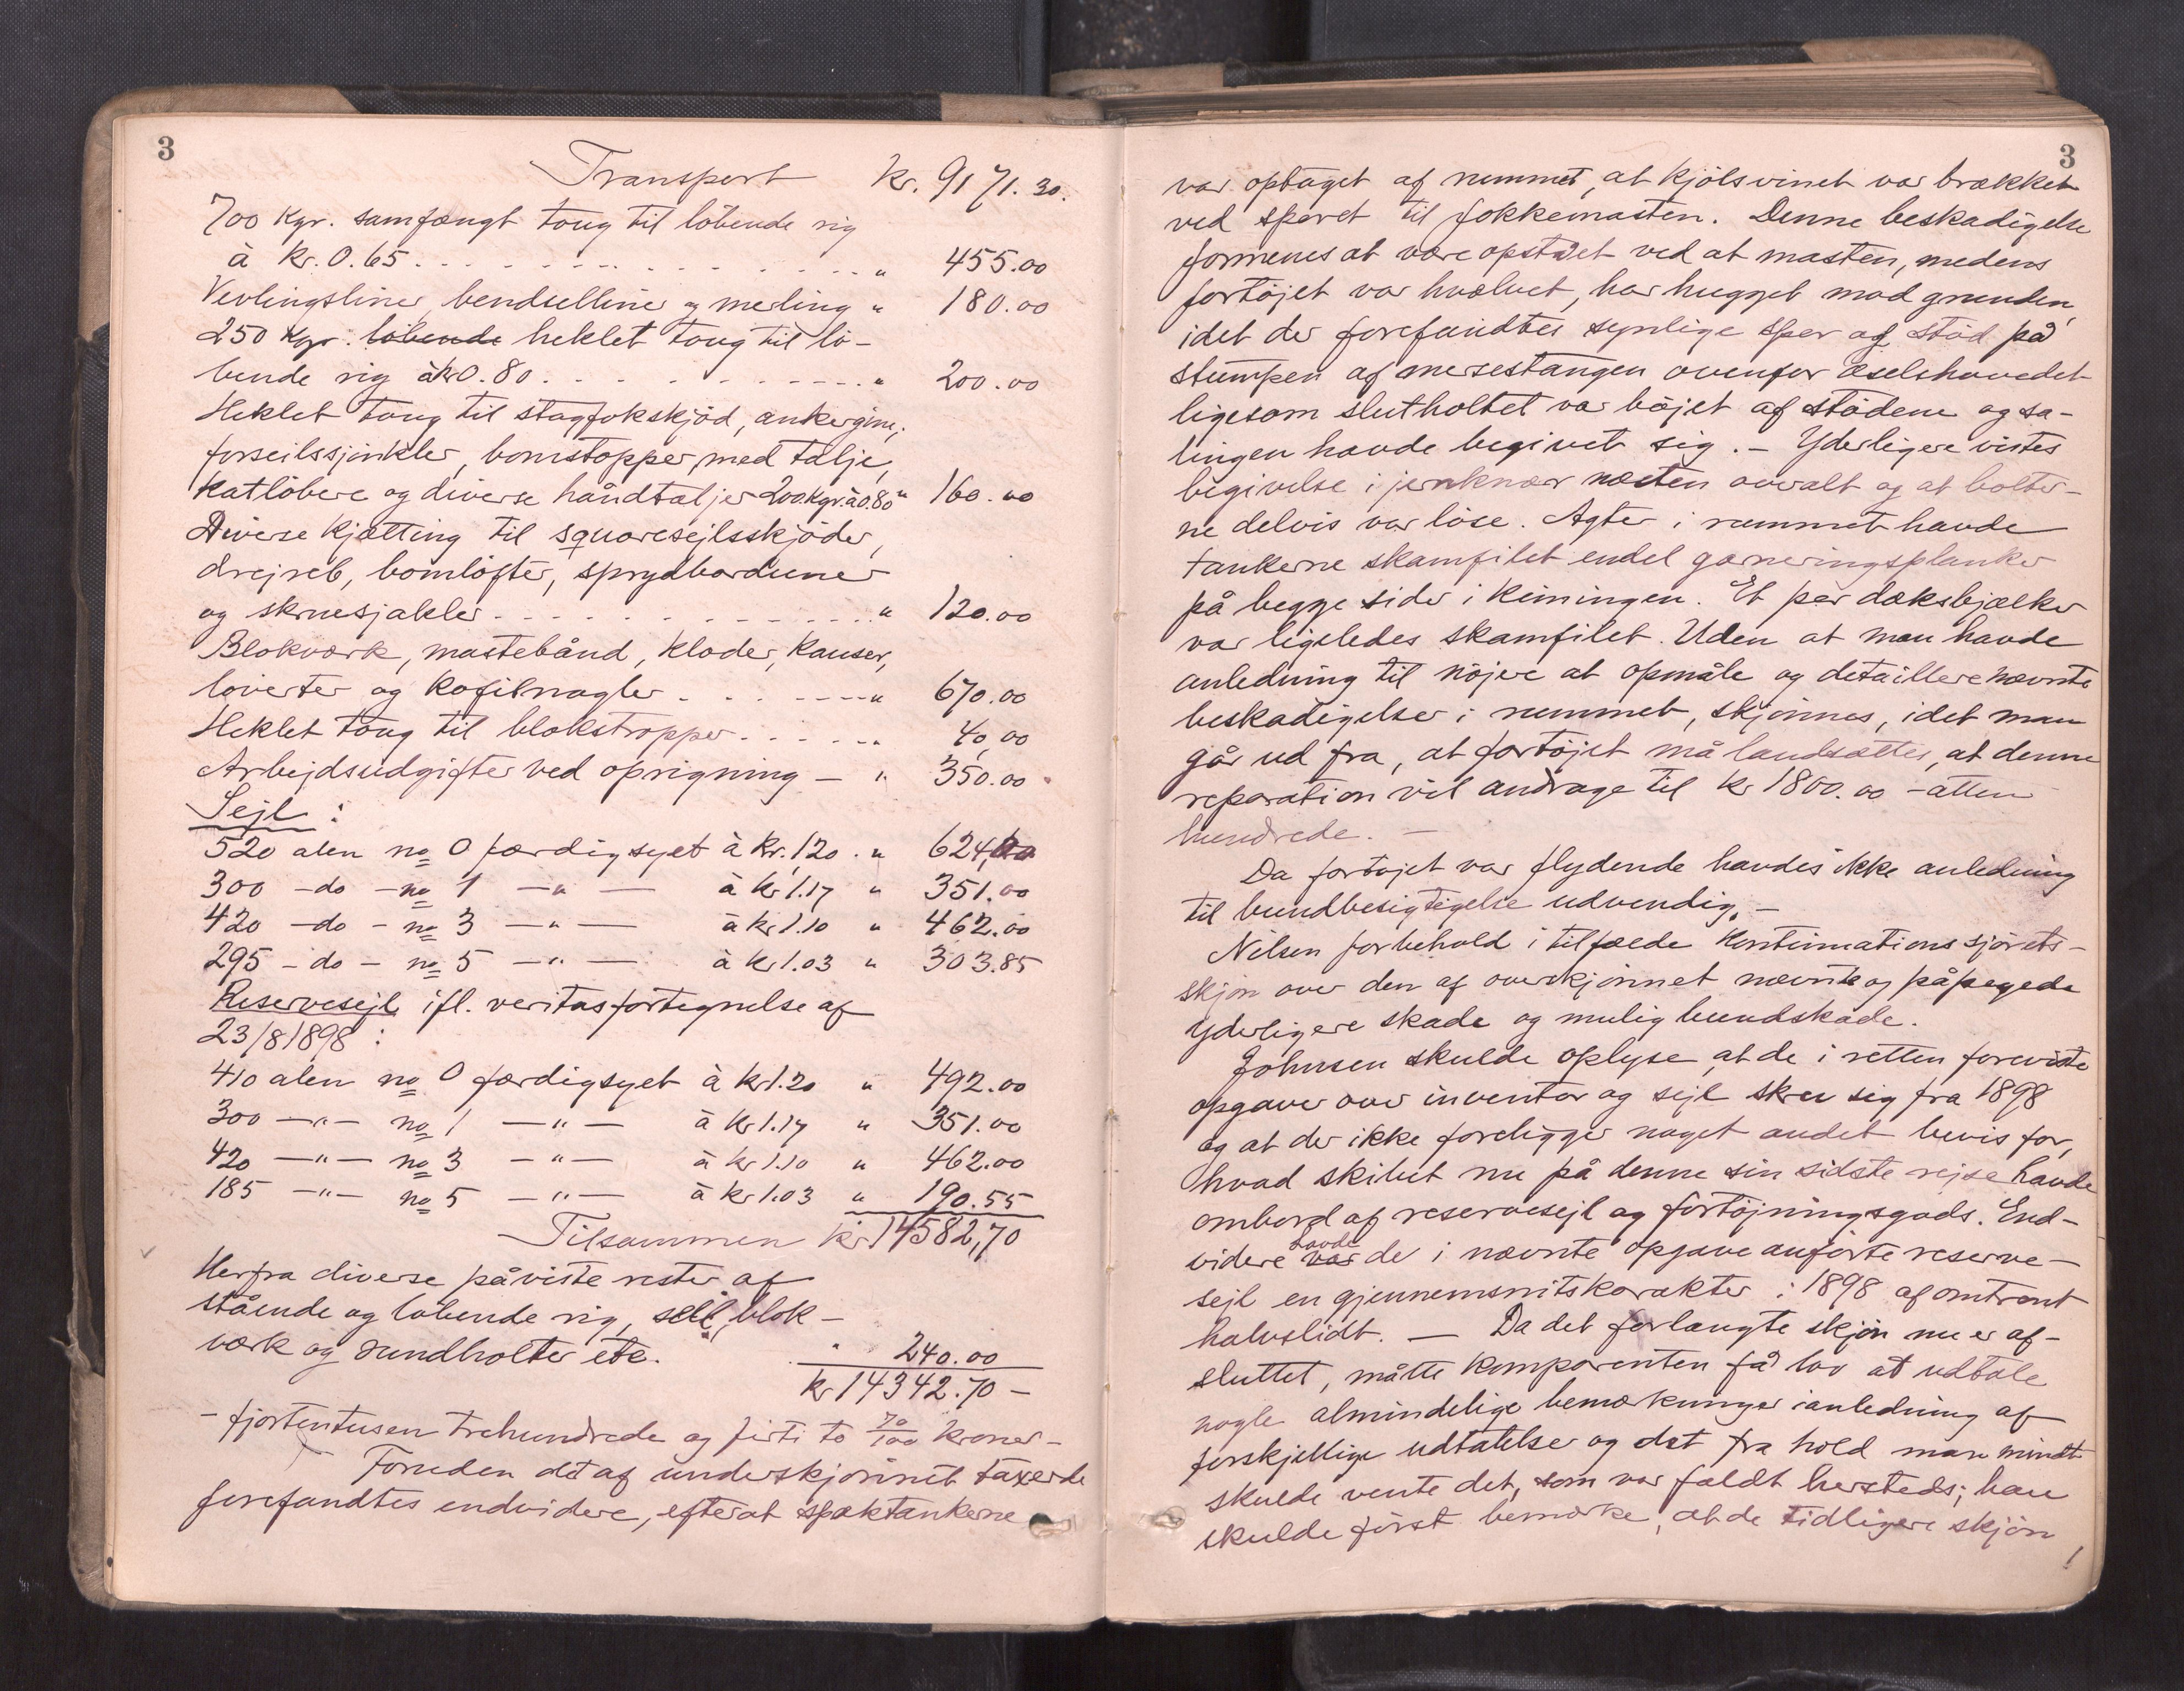 3
Transport kr. 9171.30.
700 kgr. samfængt toug til løbende rig
à kr. 0.65 . . . . . . . . . . . " 455.00
Vevlingsliner, bendselliner og merling " 180.00
250 kgr. løbende heklet toug til lø-
bende rig à kr 0.80 . . . . . . . . . " 200.00
Heklet toug til stagfokskjød, ankergine,
forseilssjinkler, bomstopper med talje,
Katløbere og diverse håndtaljer 200 kgr. à 0.80 " 160.00
Diverse kjætting til squaresejlsskjøder,
drejreb, bomløfter, sprydbarduner
og skruesjakler . . . . . . . . . . . " 120.00
Blokværk, mastebånd, kloder, kauser,
løierter og kofilnagler . . . . . . " 670.00
Heklet toug til blokstropper . . . . . " 40,00
Arbejdsudgifter ved oprigning — " 350.00
Sejl:
520 alen no 0 færdigsyet à kr. 1.20 . " 624.00
300 - do - no 1 — " — à kr 1.17 " 351.00
420 - do - no 3 — " — à kr 1.10 " 462.00
295 - do - no 5 — " — à kr 1.03 " 303.85
Reservesejl ifl. veritasfortegnelse af
23/8 1898:
410 alen no 0 færdigsyet à kr 1.20 " 492.00
300 — " — no 1 — " — à kr 1.17 " 351.00
420 — " — no 3 — " — à kr 1.10 " 462.00
185 — " — no 5 — " — à kr 1.03 " 190.55
Tilsammen kr 14582,70
Herfra diverse påviste rester af
stående og løbende rig, sejl, blok-
værk og rundholter etc. " 240.00
kr 14342.70 —
- fjortentusen trehundrede og firti to 70/100 kroner -
Foruden det af underskjønnet taxerede
forefandtes endvidere, efterat spæktankerne
3
var optaget af rummet, at kjølsvinet var brækket
ved sporet til fokkemasten. Denne beskadigelse
formenes at være opstået ved at masten, medens
fartøjet var hvælvet, har hugget mod grunden,
idet der forefandtes synlige spor af stød på
stumpen af mersestangen ovenfor æselshovedet
ligesom slutholtet var bøjet af stødene og sa-
lingen havde begivet sig. — Yderligere vistes
begivelse i jernknær næsten overalt og at bolter-
ne delvis var løse. Agter i rummet havde
tankerne skamfilet endel garneringsplanker
på begge sider i kimingen. Et par dæksbjælker
var ligeledes skamfilet. Uden at man havde
anledning til nøjere at opmåle og detaillere nævnte
beskadigelser i rummet, skjønnes, idet man
går ud fra, at fartøjet må landsættes, at denne
reparation vil andrage til kr 1800.00 - atten
hundrede. —
Da fartøjet var flydende havdes ikke anledning
til bundbesigtigelse udvendig. —
Nilsen forbeholdt i tilfælde kontinuationssjørets-
skjøn over den af overskjønnet nævnte og påpegede
yderligere skade og mulig bundskade.
Johnsen skulde oplyse, at de i retten foreviste
opgaver over inventar og sejl skrev sig fra 1898
og at der ikke foreligger noget andet bevis for,
hvad skibet nu på denne sin sidste rejse havde
ombord af reservesejl og fortøjningsgods. End-
videre var havde de i nævnte opgave anførte reserve-
sejl en gjennemsnitskarakter i 1898 af omtrent
halvslidt. — Da det forlangte skjøn nu er af-
sluttet, måtte komparenten få lov at udtale
nogle almindelige bemærkninger i anledning af
forskjellige udtalelser og det fra hold man mindst
skulde vente det, som var faldt hersteds; han
skulde først bemærke, at de tidligere skjøn